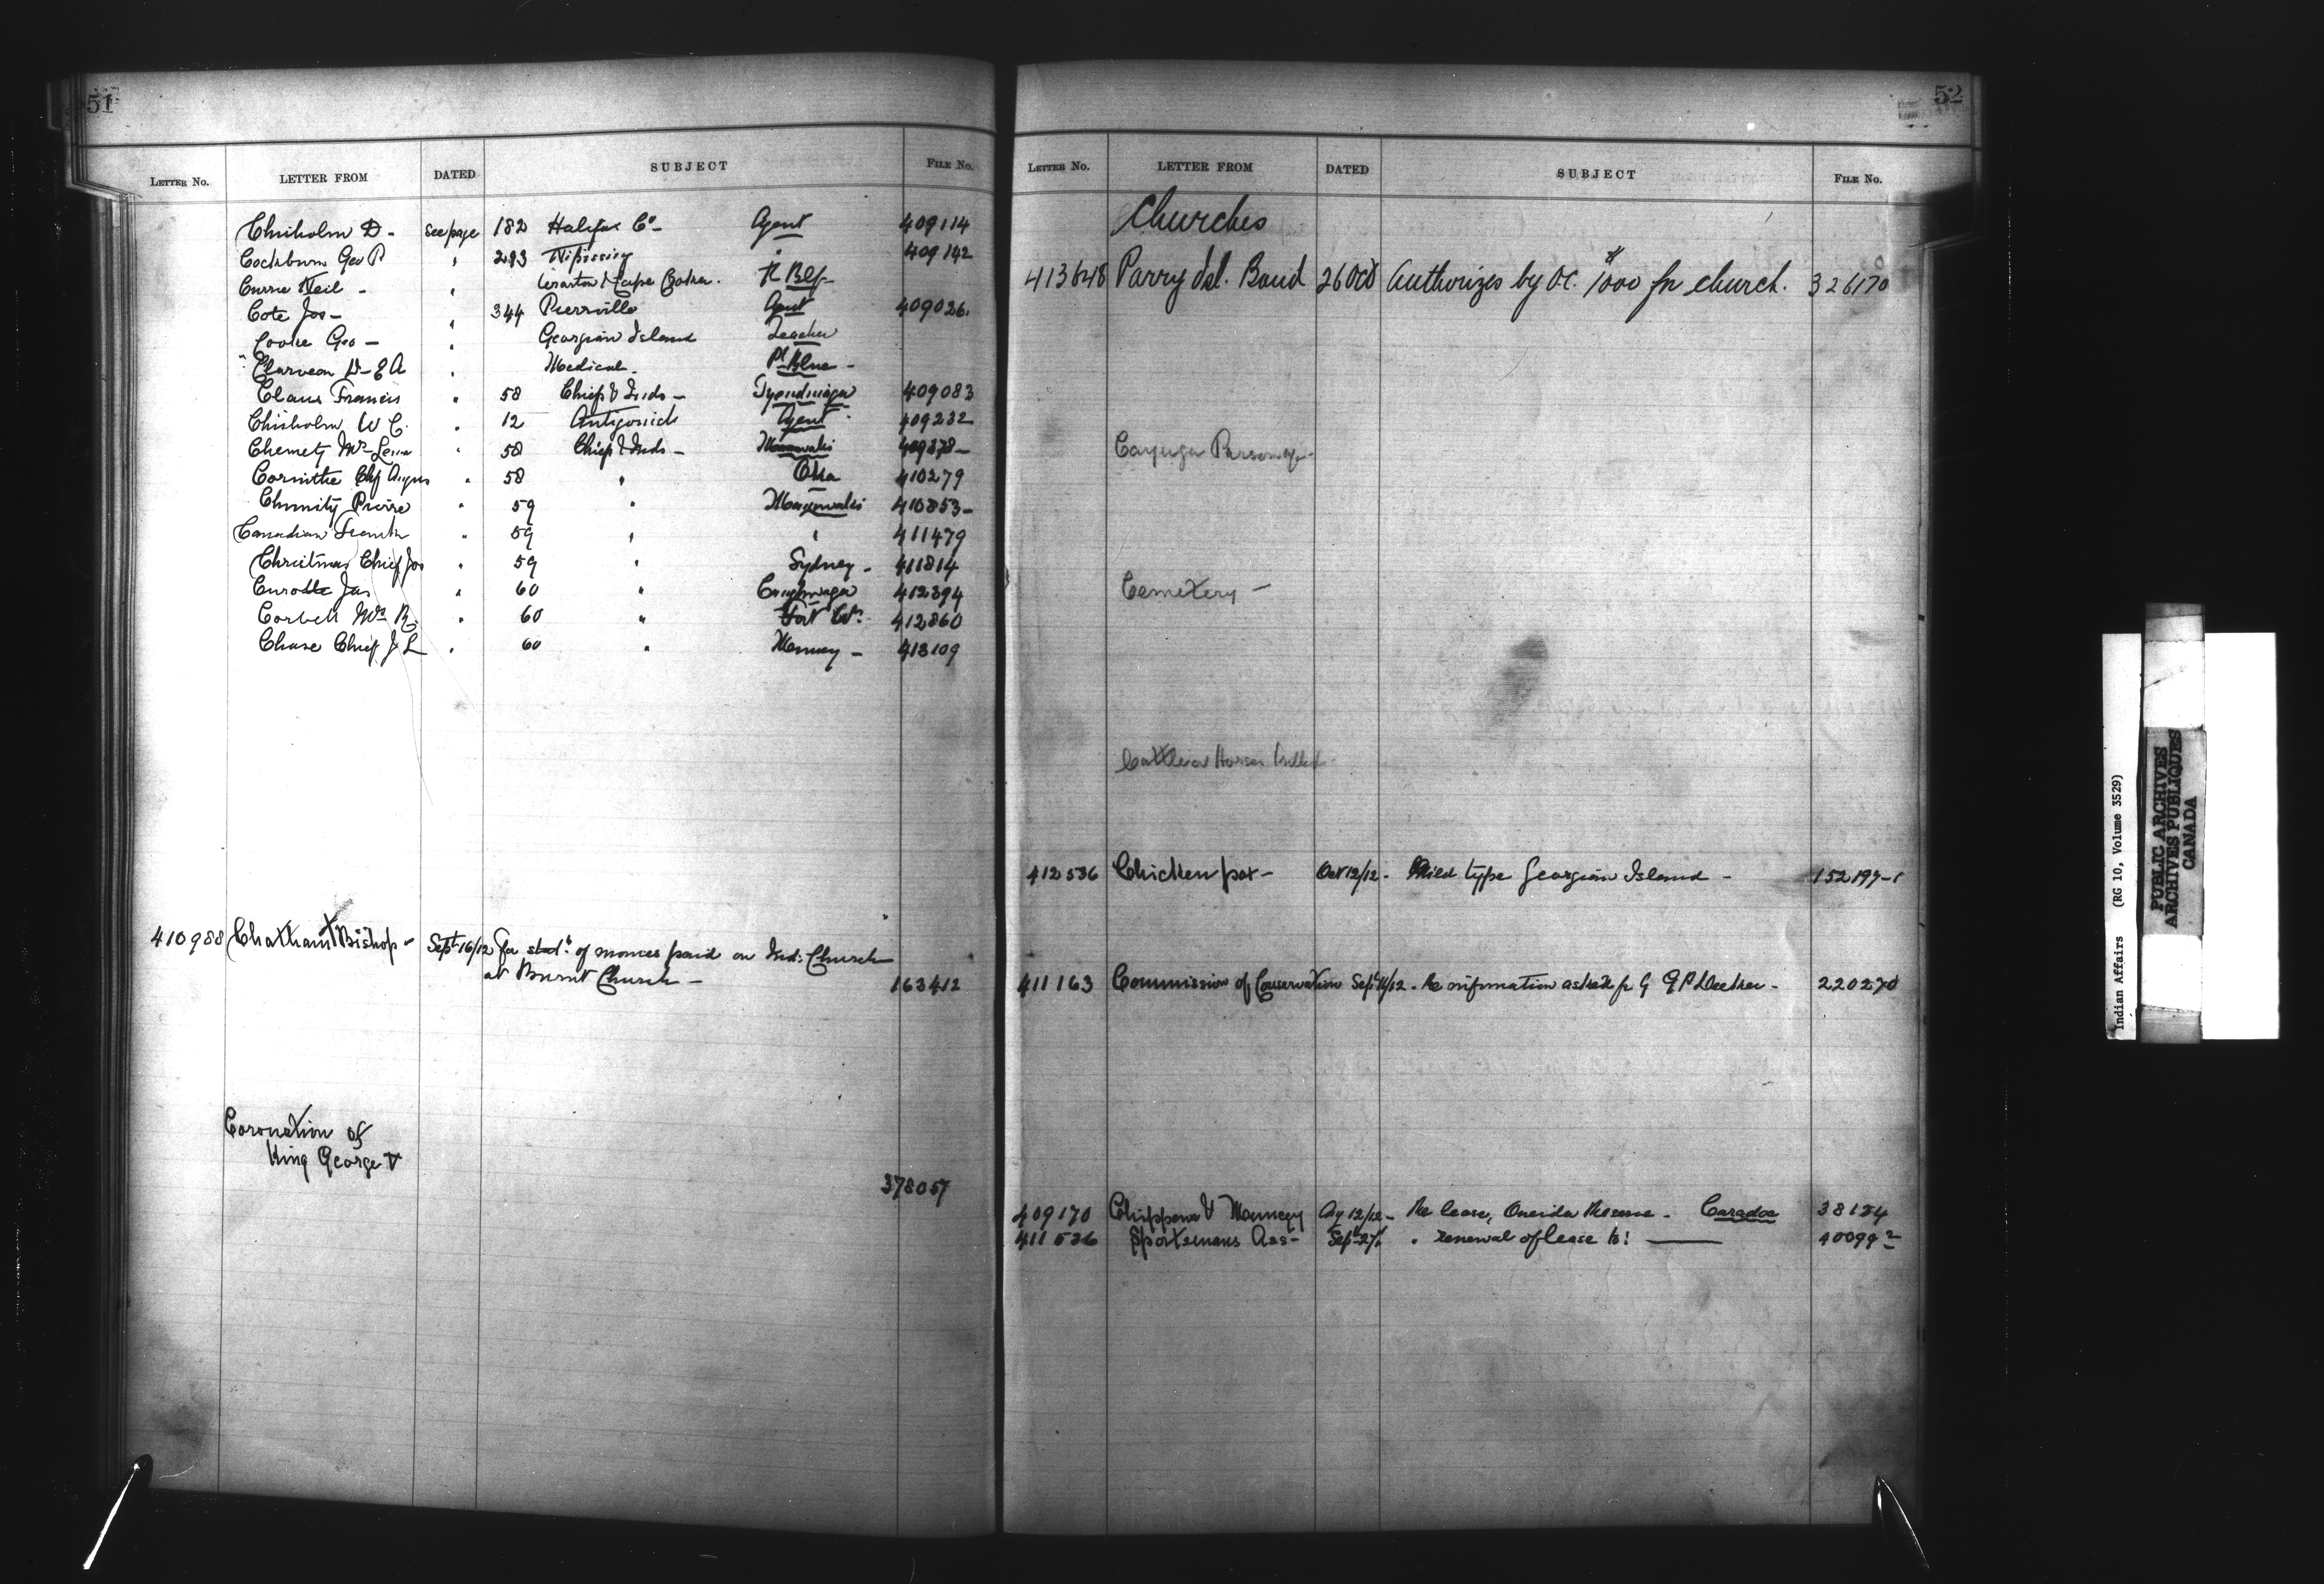 51
LETTER No. LETTER FROM DATED SUBJECT FILE No.
Chisholm D. - See page 182 Halifax Co - Agent 409114
Cockburn Geo P " 293 Nipissing " 409142
Currie Neil - " Wiarton & Cape Croker.
Cote Jos - " 344 Pierrville Agent 409026.
Cooke Geo - " Georgian Island Teacher
" Medical -
Claus Francis " 58 Chief & Inds - Tyendinaga 409083
Chisholm W C. " 12 Antigonish Agent 409232
Chemety Mrs " 58 Chief & Inds - Maniwaki
Corinthe Chf Angus " 58 " Oka 410279
Pierre " 59 " Maniwaki 410853 -
Canadian " 59 " " 411479
Christmas Chief Jos " 59 " Sydney - 411814
Curotte Jas " 60 " Caughnawaga 412394
Corbett Mrs R. " 60 " Fort Wm 412860
Chase Chief J L " 60 " Munsey - 413109
410988 Chatham Bishop - Sept 16/12 For stat. of monies paid on Ind: Church
at Burnt Church - 163412
Coronation of
King George V
378057
52
LETTER No. LETTER FROM DATED SUBJECT FILE No.
Churches
413648 Parry Isl. Band 26 Oct Authorizes by O.C. $1000 for church. 326170
Cayuga Parsonage
Cemetery -
Cattle or Horses killed
412536 Chicken pox - Oct 12/12 - Mild type Georgian Island - 152197-1
411163 Commission of Conservation Sept 11/12 - Re information asked for by 220270
409170 Chippewa & Munsey Aug 12/12 - Re lease, Oneida Reserve - Caradoc 38154
411536 Sportsmans Ass - Sept 27/12 " renewal of lease to: —— 40099-2
Indian Affairs (RG 10, Volume 3529)
PUBLIC ARCHIVES
ARCHIVES PUBLIQUES
CANADA